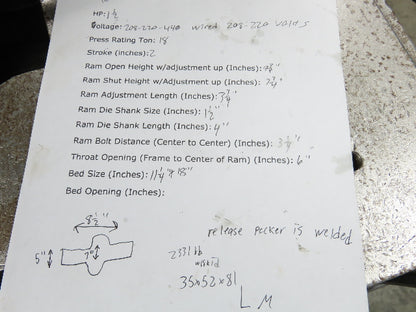 HP: 1 1/2
Voltage: 208-220-440 wired 208-220 volts
Press Rating Ton: 18
Stroke (inches): 2
Ram Open Height w/adjustment up (Inches):
Ram Shut Height w/Adjustment up (Inches): 7 3/4"
Ram Adjustment Length (Inches):
Ram Die Shank Size (Inches): 1 1/2"
Ram Die Shank Length (Inches): 4"
Ram Bolt Distance (Center to Center) (Inches): 3 1/2"
Throat Opening (Frame to Center of Ram) (Inches): 6"
Bed Size (Inches): 11 1/4 x 18"
Bed Opening (Inches):
8 1/2"
5"
7"
release pocker is welded
2331 lbb
w/skid
35x52x81
L M